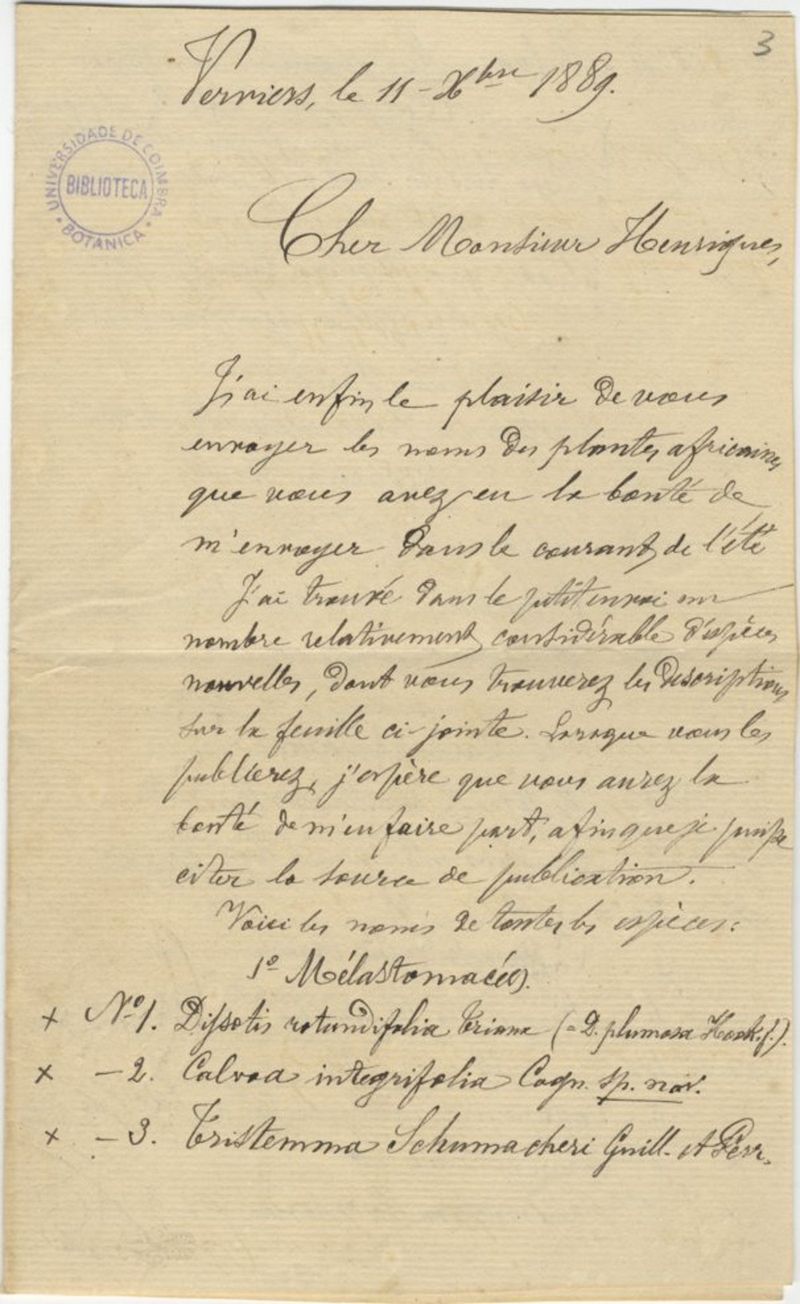 3
Verviers, le 11 - Xbre 1889.
UNIVERSIDADE DE COIMBRA
BIBLIOTECA
BOTANICA
Cher Monsieur Henriques,
J'ai enfin le plaisir de vous
envoyer les noms des plantes africaines
que vous avez eu la bonté de
m'envoyer dans le courant de l'été
J'ai trouvé dans le petit envoi un
nombre relativement considérable d'espèces
nouvelles, dont vous trouverez les descriptions
sur la feuille ci-jointe. Lorsque vous les
publierez, j'espère que vous aurez la
bonté de m'en faire part, afin que je puisse
citer la source de publication.
Voici les noms de toutes les espèces:
1º Mélastomacées.
x Nº 1. Dissotis rotundifolia Triana (= D. plumosa Hook. f.).
x - 2. Calvoa integrifolia Cogn. sp. nov.
x - 3. Tristemma Schumacheri Guill. et Perr.